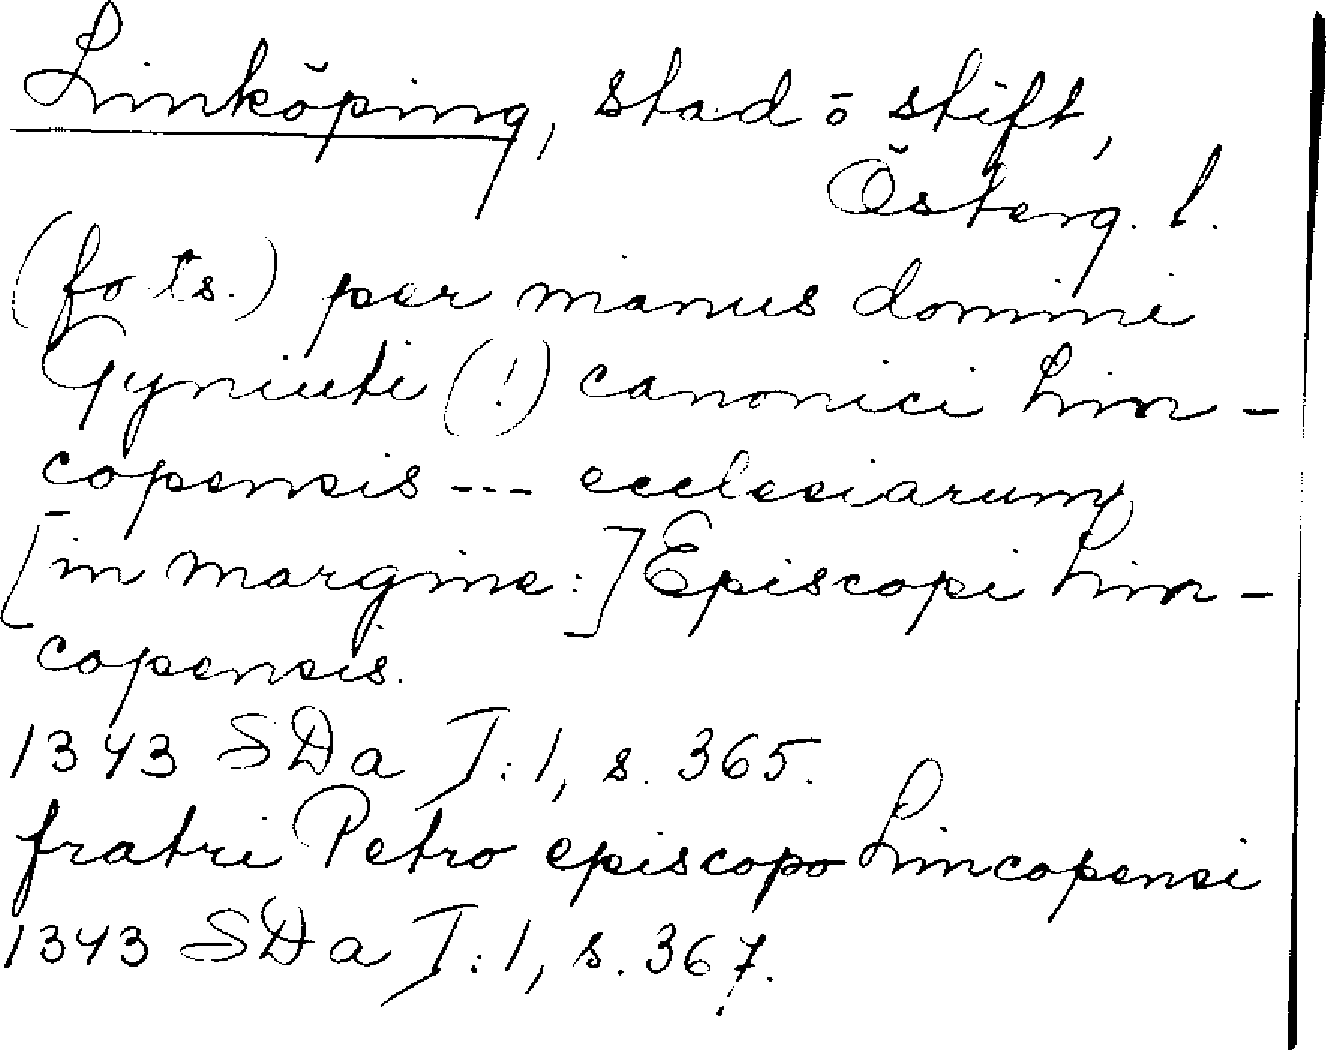 Linköping, stad o stift,
Österg. l.
(forts.) per manus domini
Gyniuti (!) canonici Lin-
copensis --- ecclesiarum,
[in margine:] Episcopi Lin-
copensis.
1343 SDa I:1, s. 365.
fratri Petro episcopo Lincopensi
1343 SDa I:1, s. 367.